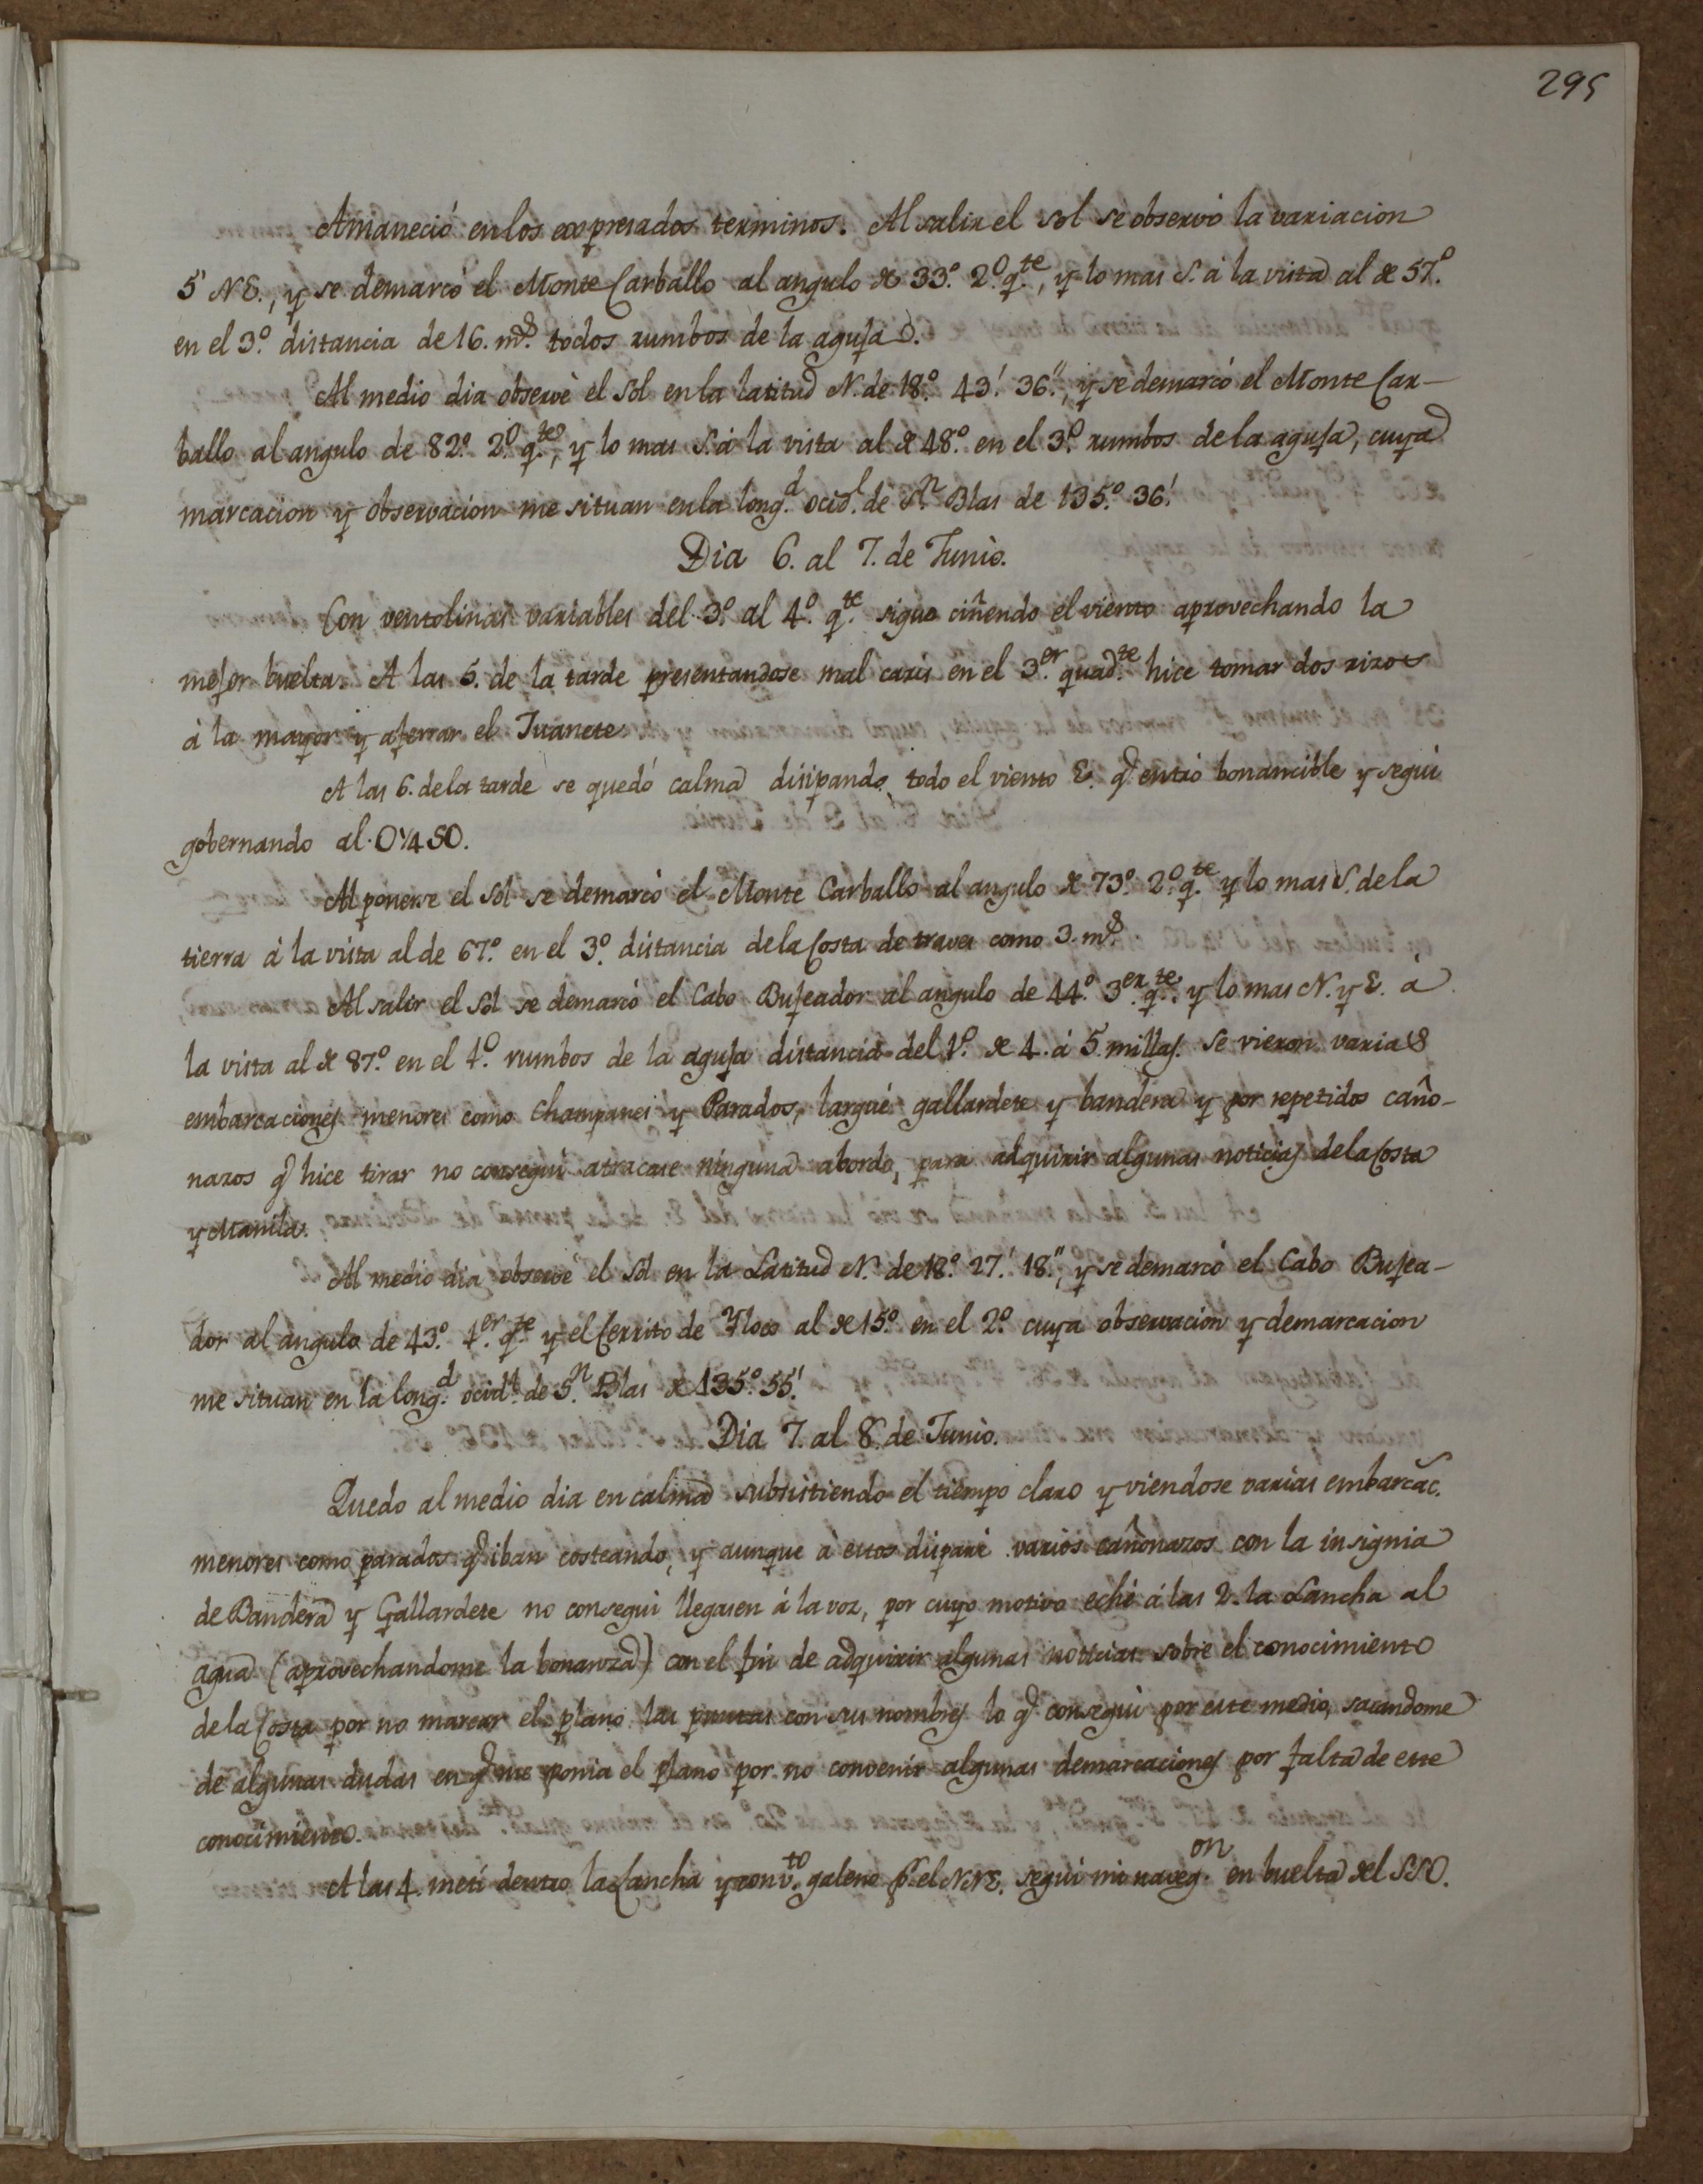 295
Amaneció en los expresados terminos. Al salir el sol se observó la variacion
5' NE., y se demarcó el Monte Carballo al angulo de 33.º 2.º q.te, y lo mas S. á la vista al de 57.º
en el 3.º distancia de 16. ms. todos rumbos de la aguja.
Al medio dia observè el Sol en la latitud N. de 18.º 43.' 36.", y se demarcó el Monte Car-
ballo al angulo de 82.º 2.º q.te, y lo mas S. á la vista al de 48.º en el 3.º rumbos de la aguja, cuya
marcacion y observacion me situan en la long.d ocid.l de S.n Blas de 135.º 36.'
Dia 6. al 7. de Junio.
Con ventolinas variables del 3.º al 4.º q.te sigue ciñendo el viento aprovechando la
mejor buelta. A las 5. de la tarde presentandose mal caris en el 3.er quad.te hice tomar dos rizos
á la mayor y aferrar el Juanete.
A las 6. de la tarde se quedó calma disipando todo el viento E. q.e entró bonancible y seguí
gobernando al O¼SO.
Al ponerse el Sol se demarcó el Monte Carballo al angulo de 73.º 2.º q.te y lo mas S. de la
tierra á la vista al de 67.º en el 3.º distancia de la Costa de traves como 3. ms.
Al salir el Sol se demarcó el Cabo Bujeador al angulo de 44.º 3.er q.te y lo mas N. y E. à
la vista al de 87.º en el 1.º rumbos de la aguja distancia del 1.º de 4. á 5. millas. Se vieron varias
embarcaciones menores como champanes y Parados, largué gallardete y bandera y por repetidos caño-
nazos q.e hice tirar no conseguí atracase ninguna abordo, para adquirir algunas noticias de la Costa
y Manila.
Al medio dia observè el Sol en la Latitud N. de 18.º 27.' 18.", y se demarcó el Cabo Bujea-
dor al angulo de 43.º 1.er q.te y el Cerrito de Yloco al de 15.º en el 2.º cuya observacion y demarcacion
me situan en la long.d ocid.l de S.n Blas de 135.º 55.'
Dia 7. al 8. de Junio.
Quedo al medio dia en calma subsistiendo el tiempo claro y viendose varias embarcac.s
menores como parados q.e iban costeando, y aunque à estos disparé varios cañonazos con la insignia
de Bandera y Gallardete no conseguí llegasen á la voz, por cuyo motivo eché á las 2. la Lancha al
agua (aprovechandome la bonanza) con el fin de adquirir algunas noticias sobre el conocimiento
de la Costa por no marcar el plano las puntas con sus nombres lo q.e conseguí por este medio, sacandome
de algunas dudas en q.e me ponia el plano por no convenir algunas demarcaciones por falta de este
conocimiento.
A las 4. metí dentro la Lancha y con v.to galeno p.r el NNE. seguí mi naveg.on en buelta del SSO.